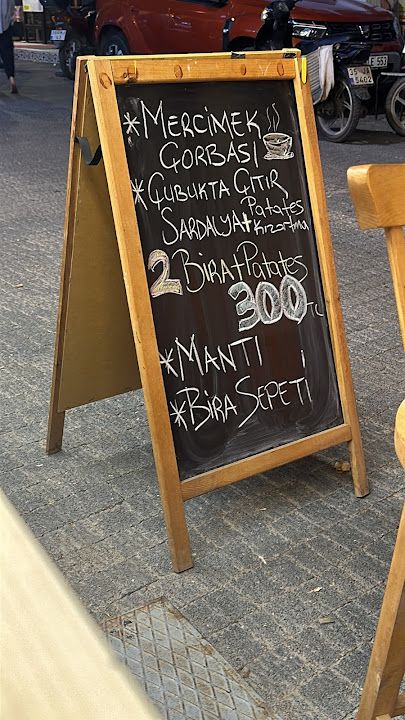 *MERCİMEK
ÇORBASI
*ÇUBUKTA ÇITIR
SARDALYA+ Patates Kızartma
2 Bira+Patates
300 TL
*MANTI
*BİRA SEPETİ